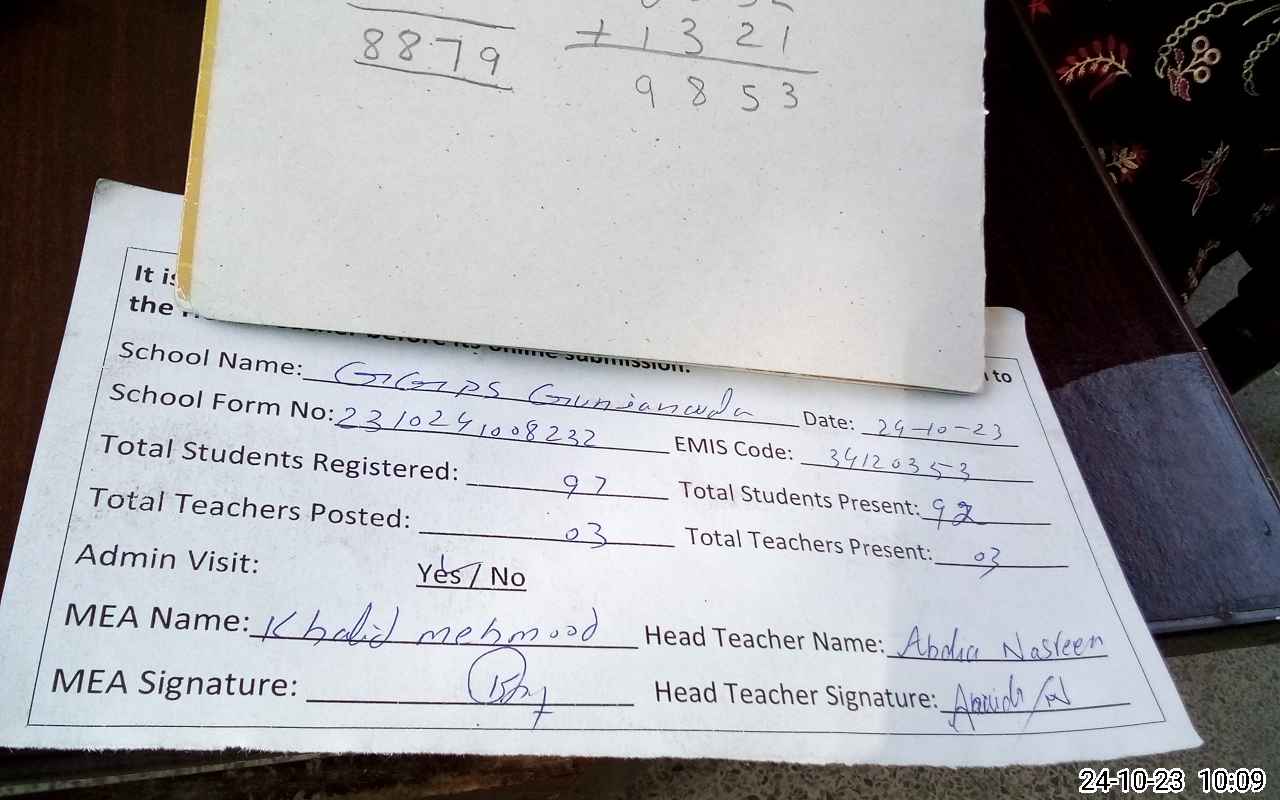 8879
+ 1321
9853
It is
the
before its online submission.
to
School Name: GGPS Gunianwala Date: 24-10-23
School Form No: 2310241008232 EMIS Code: 34120353
Total Students Registered: 97 Total Students Present: 92
Total Teachers Posted: 03 Total Teachers Present: 03
Admin Visit: Yes / No
MEA Name: Khalid mehmood Head Teacher Name: Nasreen
MEA Signature: Head Teacher Signature:
24-10-23 10:09